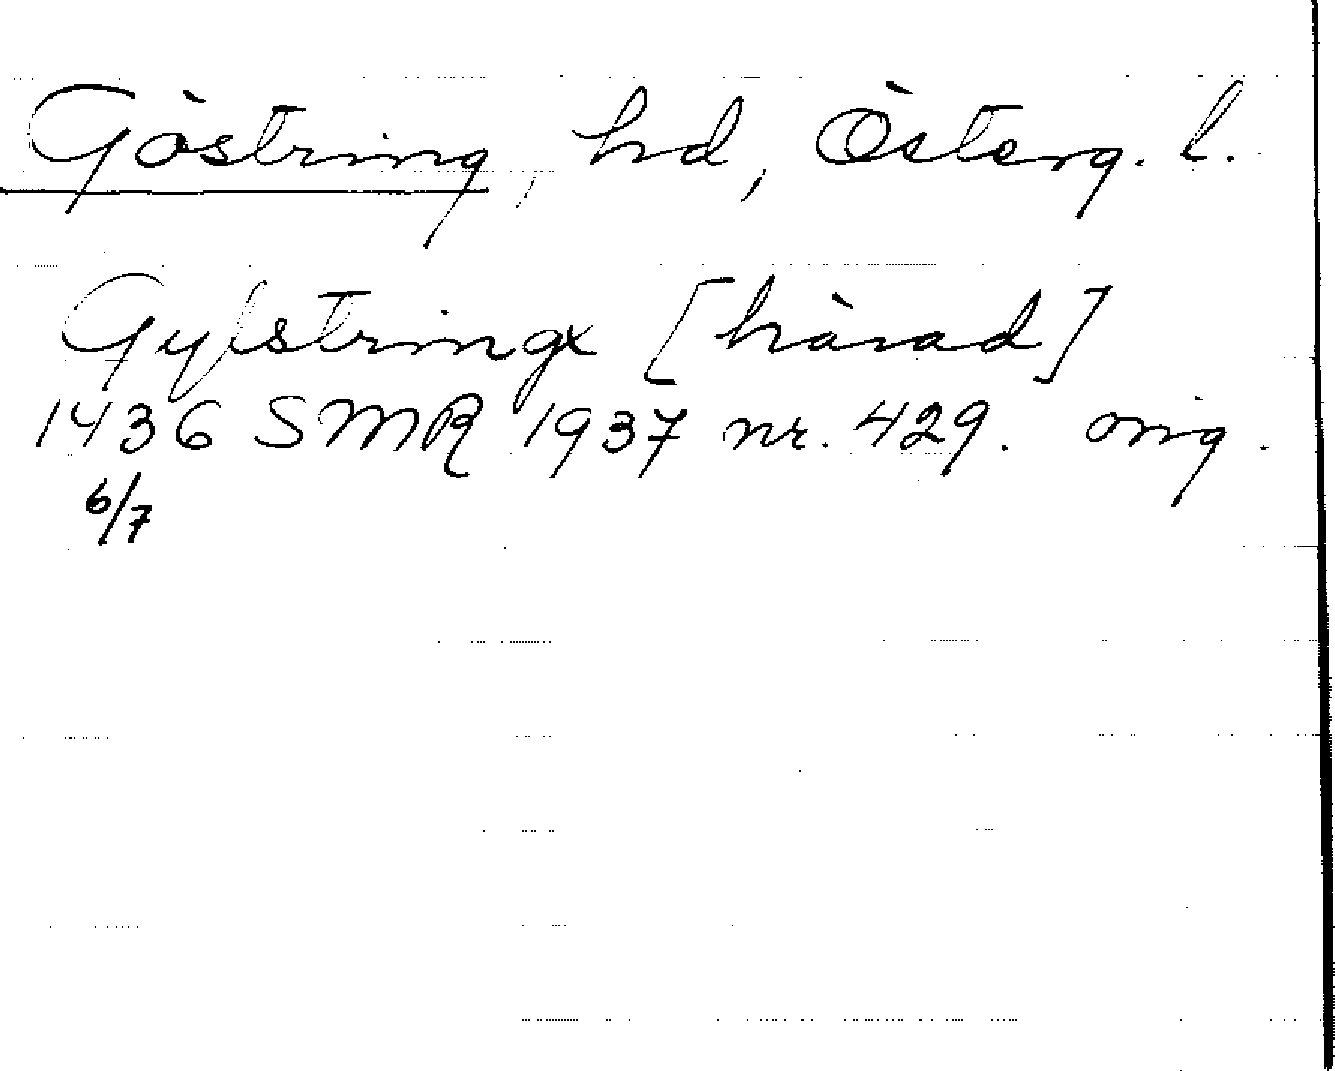 Göstring, hd, Österg. l.
Gylstringx [härad]
1436 SMR 1937 nr. 429. orig.
6/7